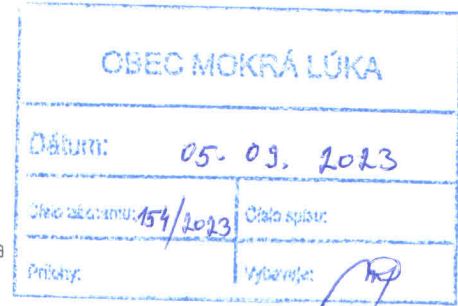 OBEC MOKRÁ LÚKA
Dátum: 05. 09. 2023
Číslo záznamu: 154/2023 Číslo spisu:
Prílohy: Vybavuje: